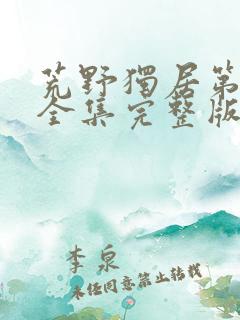 荒野獨居第
全集完整版
李泉
未經同意禁止轉載